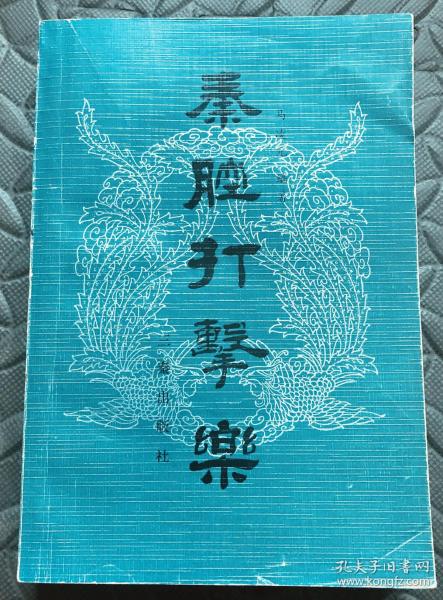 秦腔打擊樂
马
三秦出版社
孔夫子旧书网
www.kongfz.com